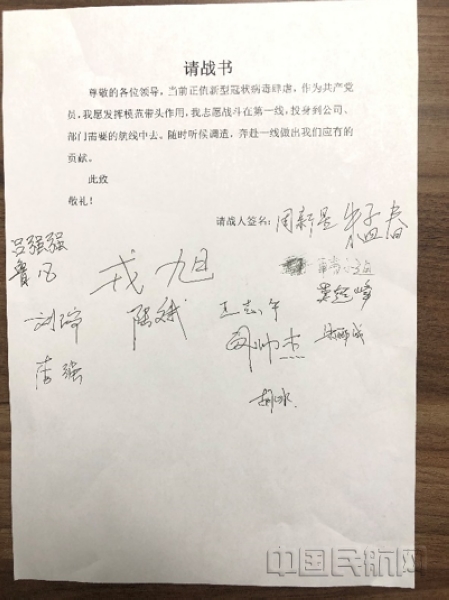 请战书
尊敬的各位领导，当前正值新型冠状病毒肆虐，作为共产党
员，我愿发挥模范带头作用，我志愿战斗在第一线，投身到公司、
部门需要的航线中去。随时听候调遣，奔赴一线做出我们应有的
贡献。
此致
敬礼！
请战人签名：周新星 朱孟春
吕强强
鲁凡 戎旭
刘 陈斌 王志午
周帅杰
李强
胡咏
中国民航网